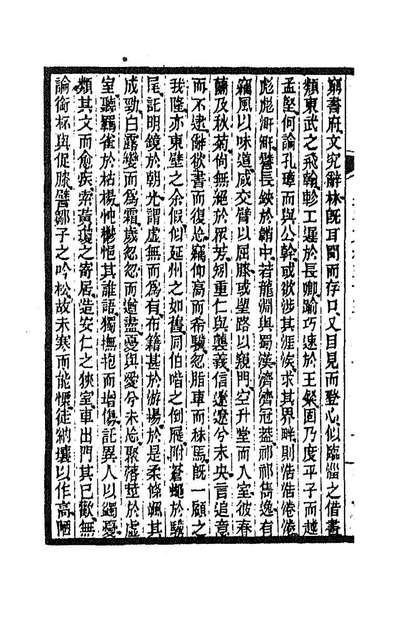 窮書府文究辭林旣耳聞而存口又目見而登心似臨淄之借書
類東武之飛翰軫工遲於長卿踰巧速於王粲固乃度平子而越
孟堅何論孔璋而與公幹或欲涉其涯涘求其界畔則浩浩港港
彪彪㵎㵎譬長鋏於鞘中若龍淵與蜀漢濟濟冠盖祁祁雋逸有
竊風以味道咸交臂以屈膝或望路以窺門空升堂而入室彼春
蘭及秋菊尚無絕於眾芳矧重仁與襲義信遼遼兮未央言追意
而不逮辭欲書而復忘竊仰高而希驥忽脂車而秣馬旣一顧之
我隆亦東壁之余假似延州之如舊同伯喈之倒屣附蒼蠅於驥
尾託明鏡於朝光謂虛無而爲有布籍甚於游揚於是柔條颯其
成勁白露變而爲霜歲忽忽而遒盡憂與愛兮未忘聚落葉於虛
室聽羈雀於枯楊忡鬱悒其誰語獨撫抱而增傷託異人以蠲憂
類其文而愈疾索黃瓊之寄居造安仁之狹室車出門其已歡無
論銜杯與促膝譬鄒子之吟松故未寒而能慄徒納壤以作高陋